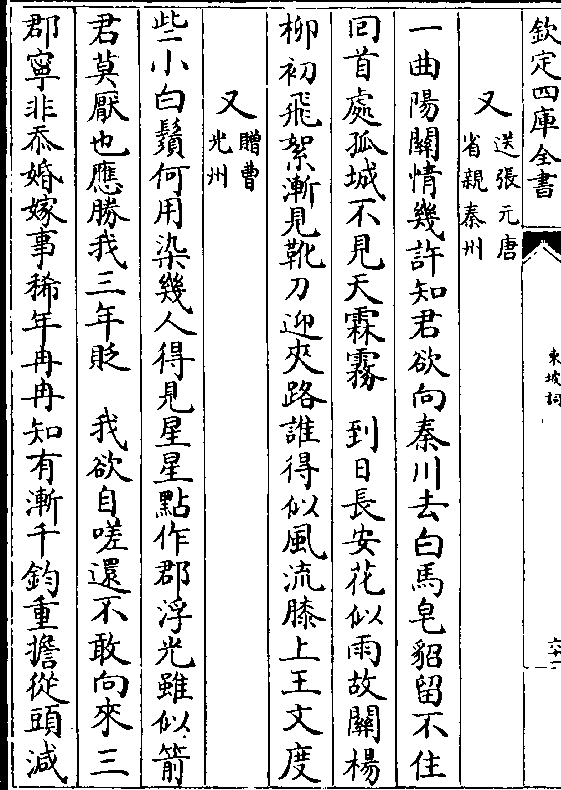 欽定四庫全書
東坡詞
又
送張元唐
省親秦州
一曲陽關情幾許知君欲向秦川去白馬皂貂留不住
回首處孤城不見天霖霧　到日長安花似雨故關楊
柳初飛絮漸見靴刀迎夾路誰得似風流膝上王文度
又
贈曹
光州
些小白鬚何用染幾人得見星星點作郡浮光雖似箭
君莫厭也應勝我三年貶　我欲自嗟還不敢向來三
郡寧非忝婚嫁事稀年冉冉知有漸千鈞重擔從頭減